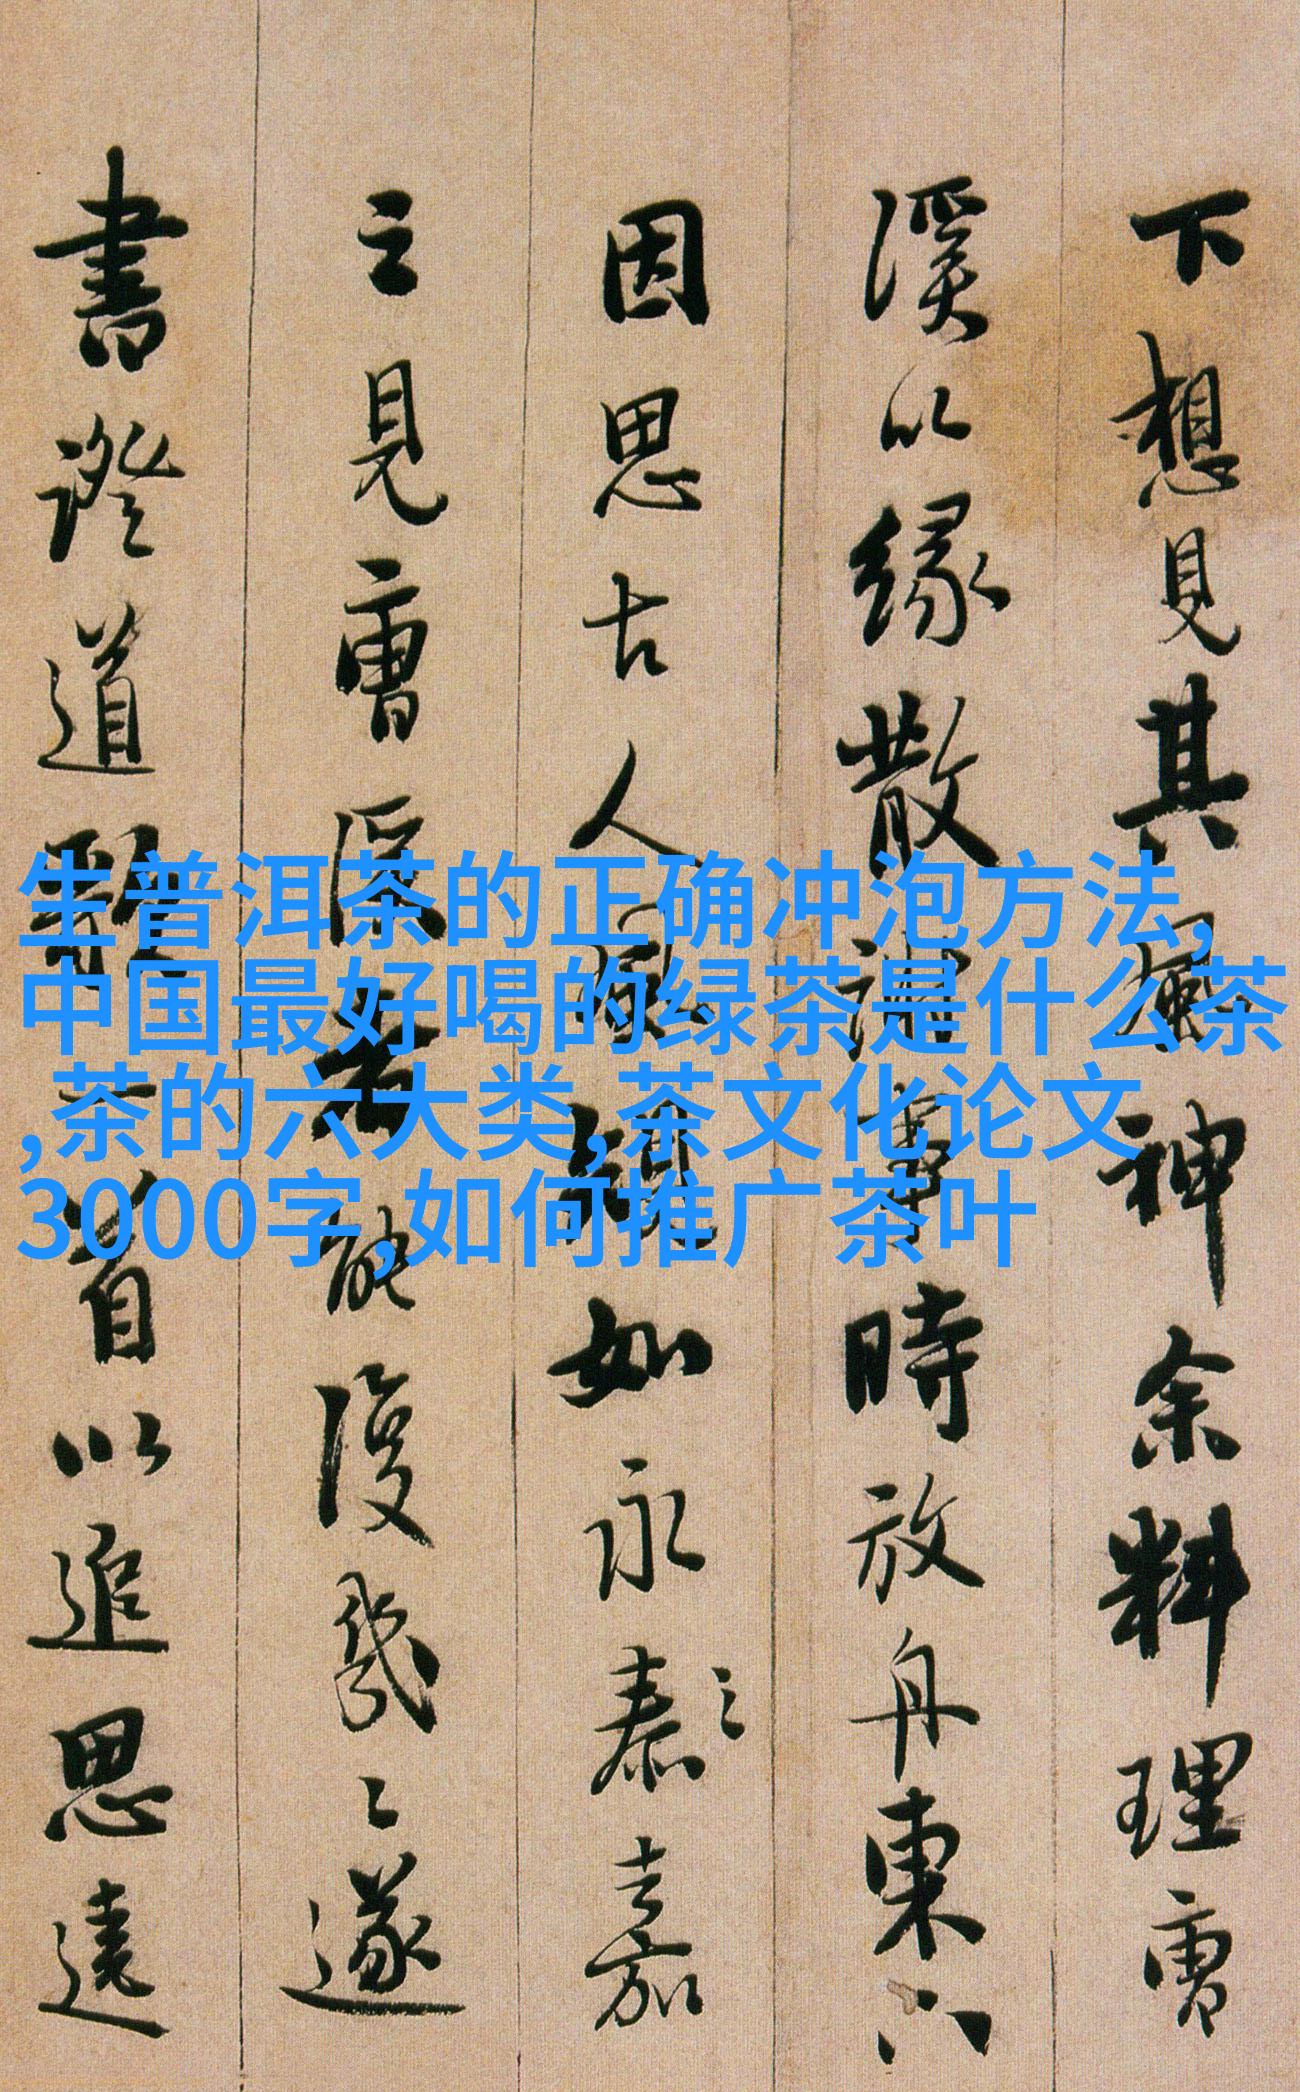 下想見其風神余料理曹
溪以緣散謝事時放舟東
因思古人風韻如永泰之嘉
之見曹溪者能復幾〻遂
書證道歌一首以追思遠
生普洱茶的正确冲泡方法,
中国最好喝的绿茶是什么茶
,茶的六大类,茶文化论文
3000字,如何推广茶叶